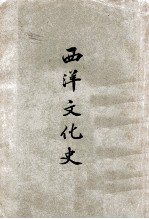 西洋文化史